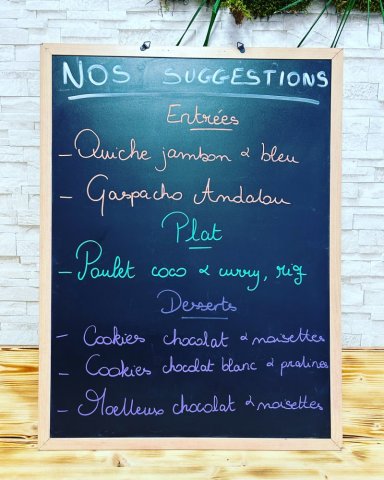 NOS SUGGESTIONS
Entrées
- Quiche jambon & bleu
- Gaspacho Andalou
Plat
- Poulet coco & curry, riz
Desserts
- Cookies chocolat & noisettes
- Cookies chocolat blanc & pralines
- Moelleux chocolat & noisettes